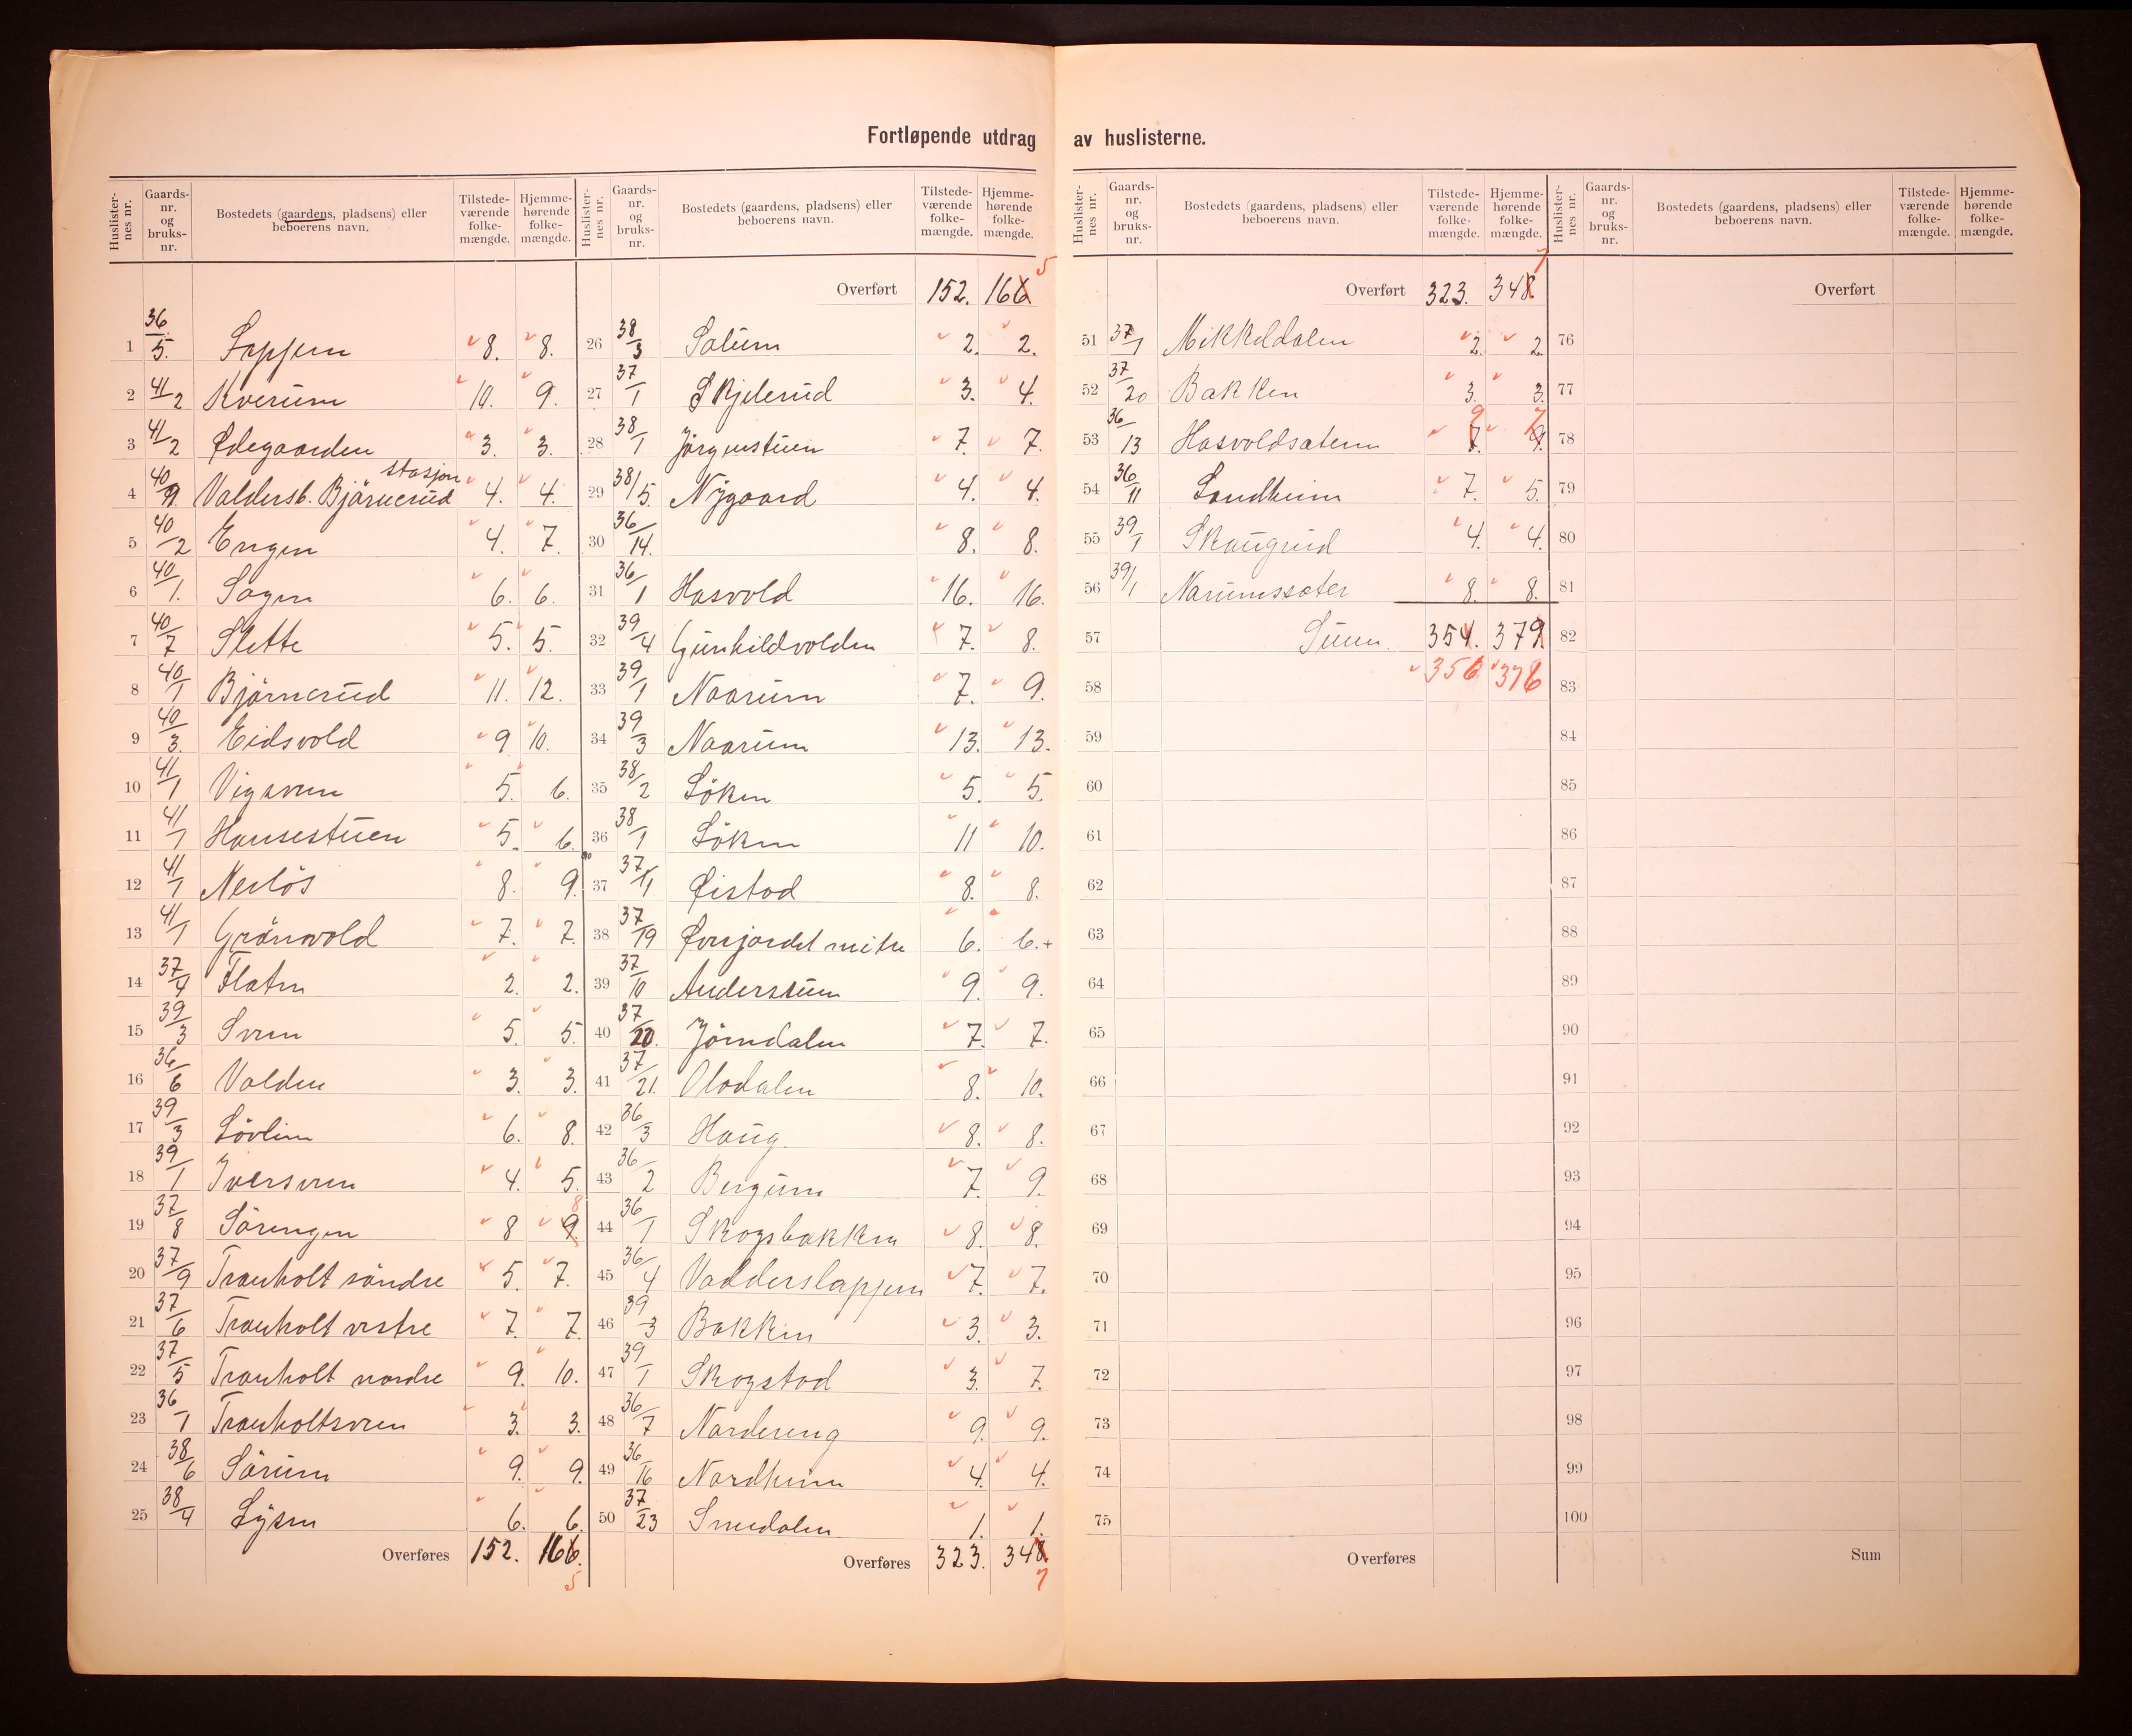 Fortløpende utdrag av huslisterne.
Huslisternes nr. Gaardsnr. og bruksnr. Bostedets (gaardens, pladsens) eller beboerens navn. Tilstedeværende folkemængde. Hjemmehørende folkemængde.
1 36/5. 8. 8.
2 41/2 Kverum 10. 9.
3 41/2 Ødegaarden 3. 3.
4 40/9 Valdersb. Bjørnerud stasjon 4. 4.
5 40/2 Engen 4. 7.
6 40/1. Sagen 6. 6.
7 40/7 Slette 5. 5.
8 40/1 Björnerud 11. 12.
9 40/3. Eidsvold 9 10.
10 41/1 Vigsveen 5. 6.
11 41/1 Hansestuen 5. 6.
12 41/1 Nerlös 8. 9.
13 41/1 Grönvold 7. 7.
14 37/4 Flaten 2. 2.
15 39/3 Sveen 5. 5.
16 36/6 Volden 3. 3.
17 39/3 Lövlien 6. 8.
18 39/1 Iversveen 4. 5.
19 37/8 Sörengen 8 9. 8
20 37/9 Tranholt söndre 5. 7.
21 37/6 Tranholt vestre 7. 7.
22 37/5 Tranholt nordre 9. 10.
23 36/1 Tranholtsveen 3. 3.
24 38/6 Sörum 9. 9.
25 38/4 Lysen 6. 6.
Overføres 152. 166. 5
Huslisternes nr. Gaardsnr. og bruksnr. Bostedets (gaardens, pladsens) eller beboerens navn. Tilstedeværende folkemængde. Hjemmehørende folkemængde.
Overført 152. 166 5
26 38/3 Solum 2. 2.
27 37/1 Skjelerud 3. 4.
28 38/1 Jörgenstuen 7. 7.
29 38/5. Nygaard 4. 4.
30 36/14. 8. 8.
31 36/1 Hasvold 16. 16.
32 39/4 Gunhildvolden 7. 8.
33 39/1 Naarum 7. 9.
34 39/3 Naarum 13. 13.
35 38/2 Löken 5. 5.
36 38/1 Löken 11 10.
37 37/11 Øistad 8. 8.
38 37/19 Øversjordet mitre 6. 6.+
39 37/10 Anderstuen 9. 9.
40 37/20. Jörndalen 7. 7.
41 37/21. Oladalen 8. 10.
42 36/3 Haug. 8. 8.
43 36/2 Bergum 7. 9.
44 36/1 Skogsbakken 8. 8.
45 36/4 7. 7.
46 39/3 Bakken 3. 3.
47 39/1 Skogstad 3. 7.
48 36/7 Nordeeng 9. 9.
49 36/16 Nordheim 4. 4.
50 37/23 Smedalen 1. 1.
Overføres 323. 348. 7
Huslisternes nr. Gaardsnr. og bruksnr. Bostedets (gaardens, pladsens) eller beboerens navn. Tilstedeværende folkemængde. Hjemmehørende folkemængde.
Overført 323. 348. 7
51 37/1 Mikkeldalen 2. 2.
52 37/20 Bakken 3. 3.
53 36/13 Hasvoldsæteren 7. 9 9. 7
54 36/11 Sandheim 7. 5.
55 39/1 Skaugrud 4. 4.
56 39/1 Narumssæter 8. 8.
57 Sum. 354. 379.
58 356 376
59
60
61
62
63
64
65
66
67
68
69
70
71
72
73
74
75
Overføres
Huslisternes nr. Gaardsnr. og bruksnr. Bostedets (gaardens, pladsens) eller beboerens navn. Tilstedeværende folkemængde. Hjemmehørende folkemængde.
Overført
76
77
78
79
80
81
82
83
84
85
86
87
88
89
90
91
92
93
94
95
96
97
98
99
100
Sum